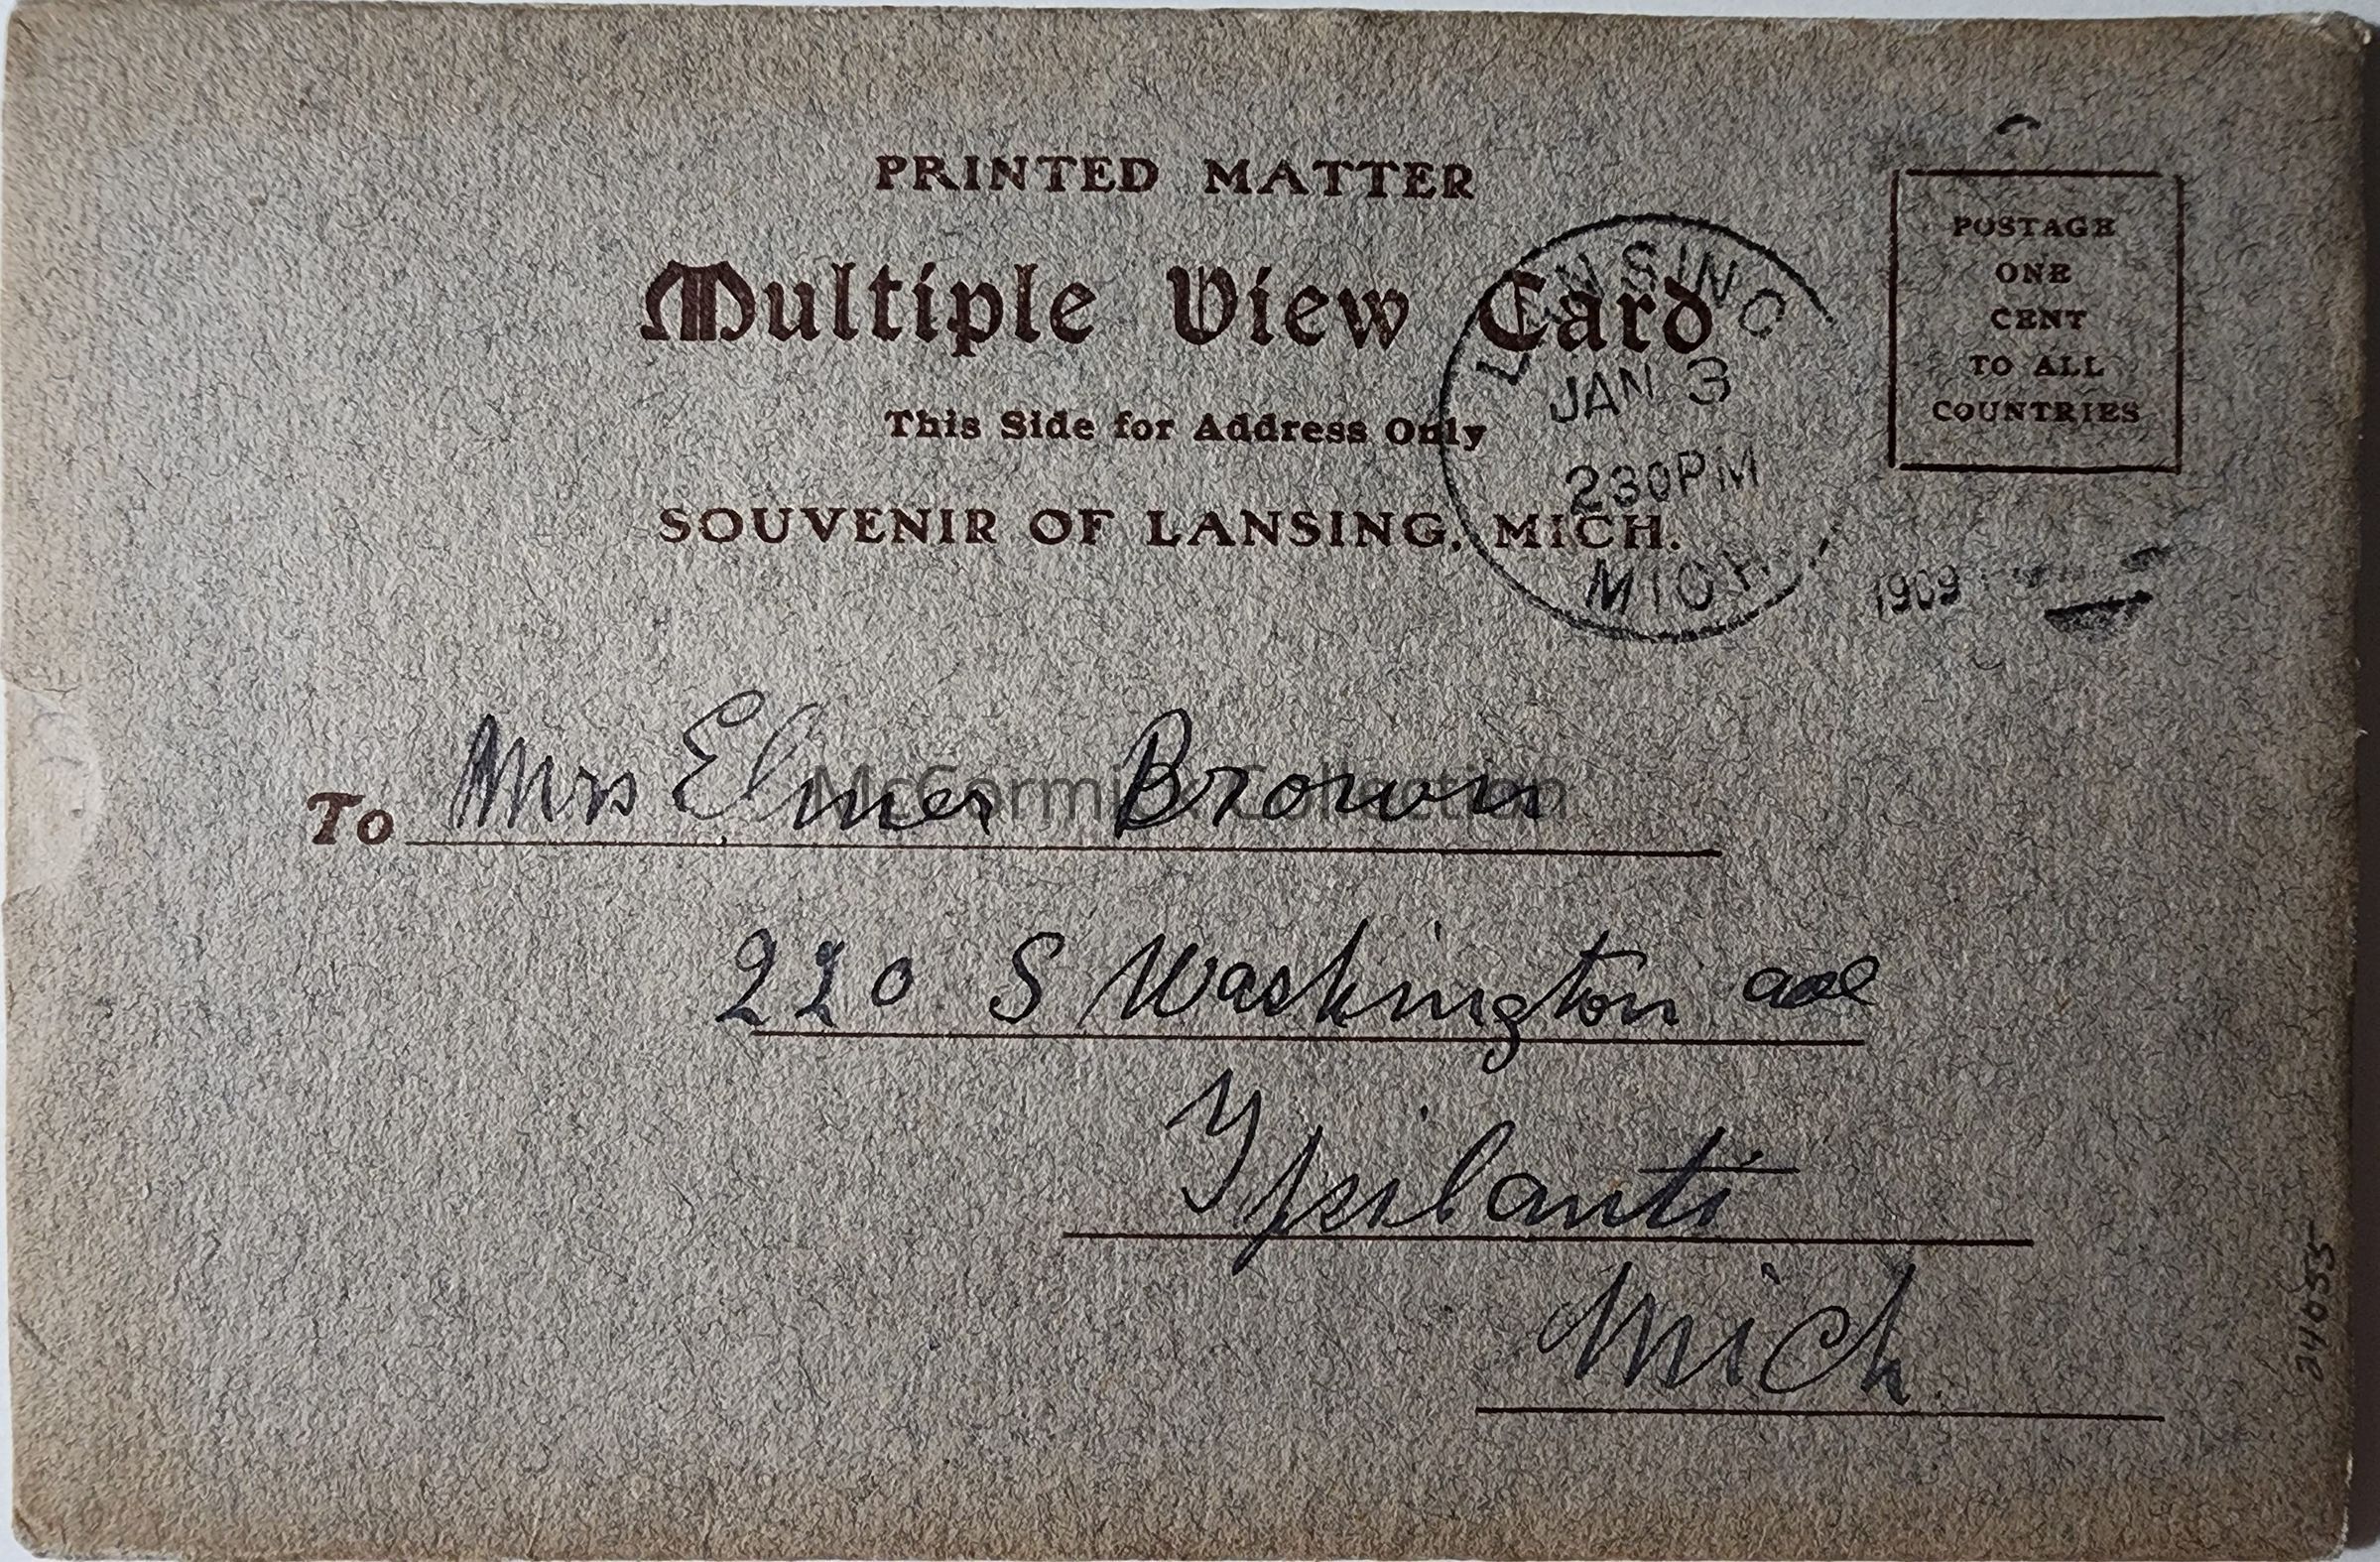 PRINTED MATTER
Multiple View Card
This Side for Address Only
SOUVENIR OF LANSING, MICH.
LANSING
JAN 3
230PM
MICH
1909
POSTAGE
ONE
CENT
TO ALL
COUNTRIES
To Mrs Elmer Brown
McCormick Collection
220 S Washington ave
Ypsilanti
Mich.
21655